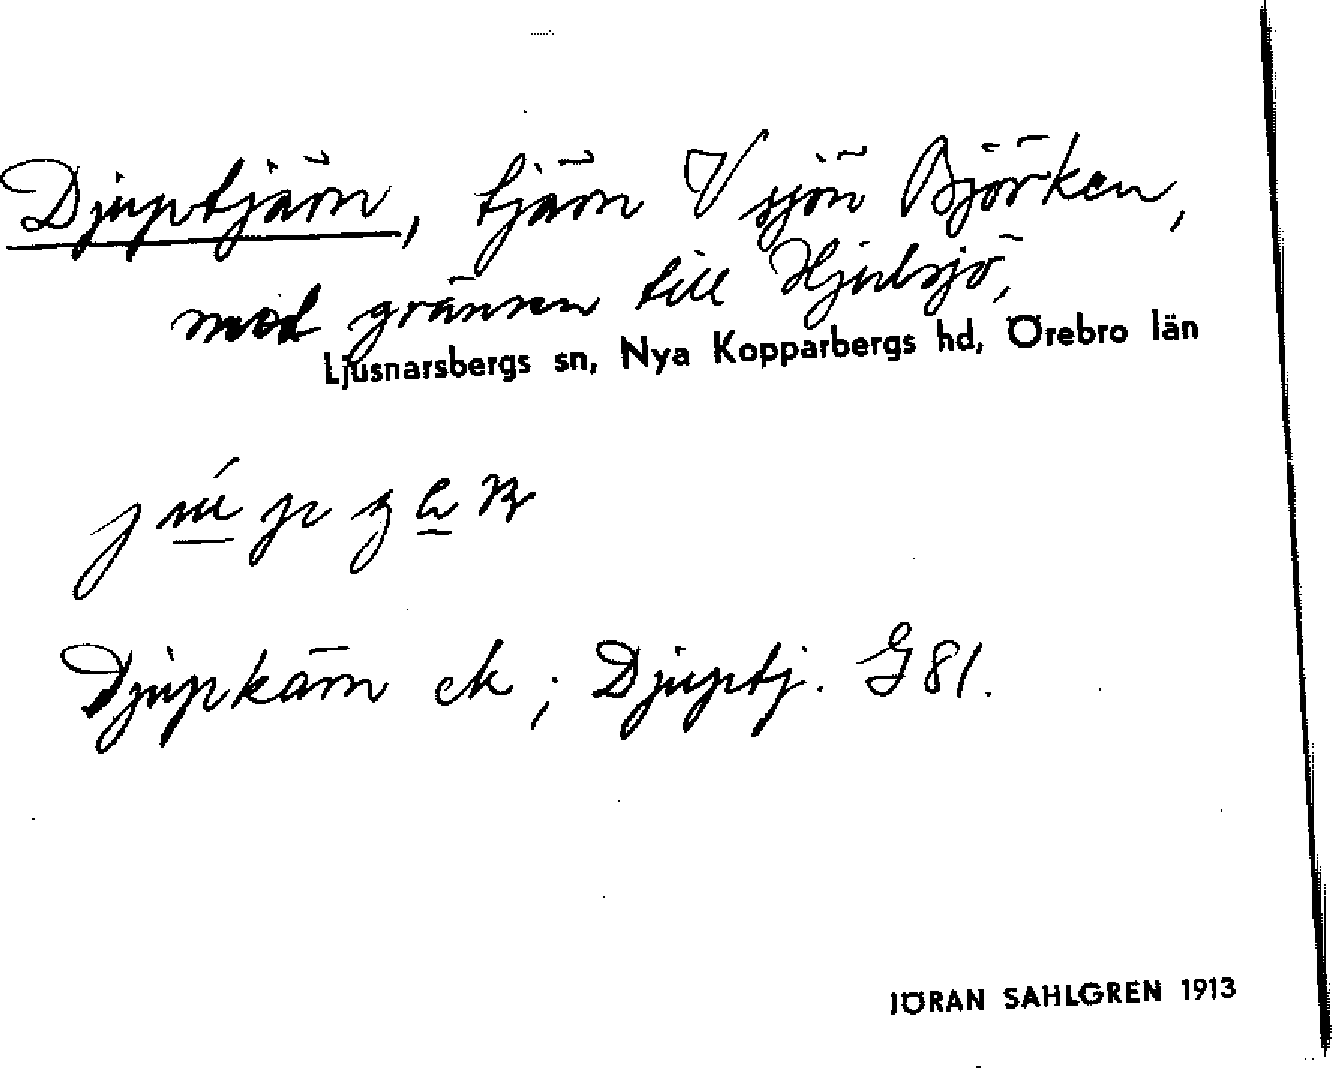 Djuptjärn, tjärn V sjön Björken,
med gränsen till Hjulsjö,
Ljusnarsbergs sn, Nya Kopparbergs hd, Örebro län
Djupkärn ek; Djuptj. G 81.
JÖRAN SAHLGREN 1913